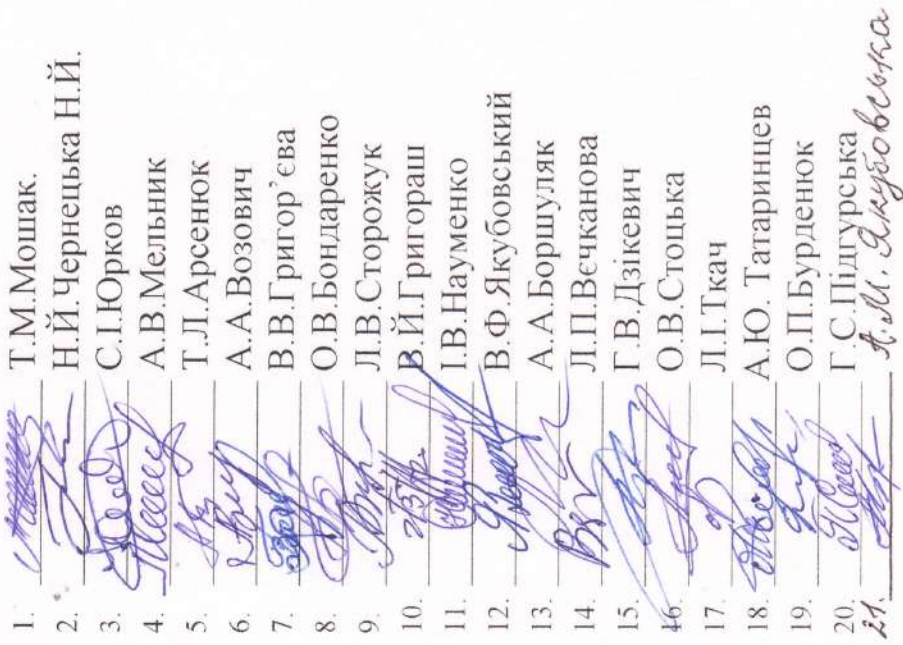 1. Т.М.Мошак.
2. Н.Й.Чернецька Н.Й.
3. С.І.Юрков
4. А.В.Мельник
5. Т.Л.Арсенюк
6. А.А.Возович
7. В.В.Григор’єва
8. О.В.Бондаренко
9. Л.В.Сторожук
10. В.Й.Григораш
11. І.В.Науменко
12. В.Ф.Якубовський
13. А.А.Боршуляк
14. Л.П.Вєчканова
15. Г.В.Дзікевич
16. О.В.Стоцька
17. Л.І.Ткач
18. А.Ю. Татаринцев
19. О.П.Бурденюк
20. Г.С.Підгурська
21. А.М. Якубовська